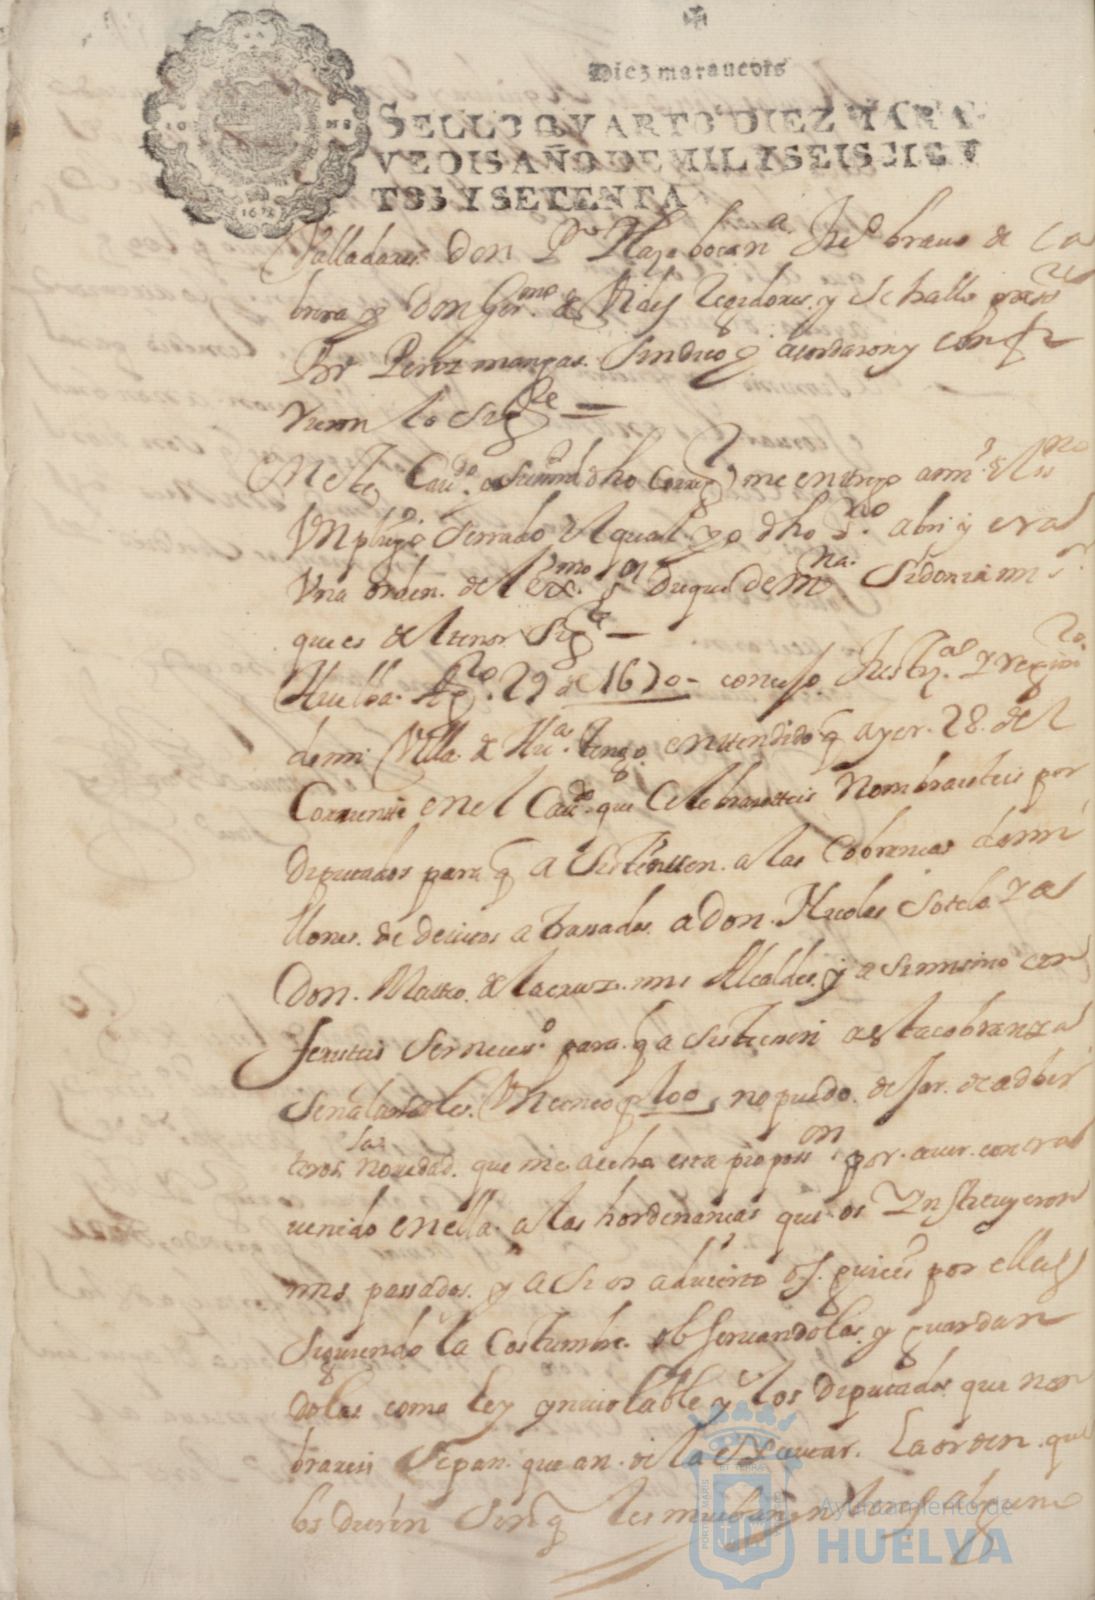 Diez marauedis
SELLO QVARTO DIEZ MARA
VEDIS AÑO DE MIL Y SEISCIEN
TOS Y SETENTA
Valladares Don P.º bocan.ª bravo de Ca
brera y Don Ger.mo de Regidores y se hallo press.te
Perez mangas. Sindico y acordaron y confi
rieron lo Sig.te
En este Cau.do dho Correg.r me entrego a mi el ss.no
Vn pliego Serrado el qual yo dho s.no abri y era
Una orden. del ex.mo s.r Duque de m.na Sidonia mi s.r
que es del tenor Sig.te
Huelba. Ag.to 29 de 1670 - consejo. Just.ª Y regimi.to
de mi Villa. de Hu.ª tengo. entendido. q ayer. 28. del
Corriente en el Cau.do que Celebrasteis Nombrasteis por
Diputados para. q a Sisten. a las Cobrancas de mi
llones. de a trassados. a Don. Nicolas Sotelo. Y a
Don. Matteo. de la cruz. mis Alcaldes. y a Simismo con
feristeis Ser neces.º para. q a Sistiesen a esta cobranza
Señalarles. Vn cinco p 100, no puedo. de jar. de adbir
tiros. la novedad. que me a echo esta proposs.on por. aver. contra
venido en ella. a las hordenancas que. os Ynstituyeron
mis passados. y a Si os advierto os. guieis por ellas
Siguiendo la Costumbre. observandolas. y guardan
dolas como ley ynviolable y los Diputados. que nom
brareis Sepan. que an. de la La orden. que
los dieren Sin q les mi
Ayuntamiento de
HUELVA